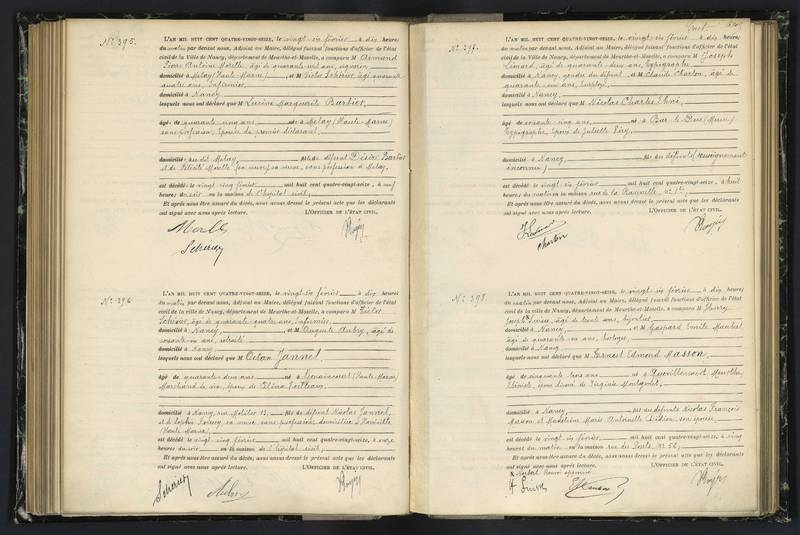 N° 395.
L'AN MIL HUIT CENT QUATRE-VINGT-SEIZE, le vingt-six février à dix heures
du matin par devant nous, Adjoint au Maire, délégué faisant fonctions d'officier de l'état
civil de la Ville de Nancy, département de Meurthe-et-Moselle, a comparu M Armand
Antoine Morelle, âgé de quarante-sept ans, vigneron
domicilié à Melay (Haute-Marne) et M Victor Schérier, âgé de quarante
quatre ans, Infirmier
domicilié à Nancy
lesquels nous ont déclaré que M Lucine Marguerite Barbier,
âgé de quarante-cinq ans né à Melay (Haute-Marne)
sans profession, épouse du premier déclarant
domicilié audit Melay, fils de défunt Désiré Barbier
et de Félicité Morelle sa veuve, sans profession à Melay,
est décédé le vingt-cinq février mil huit cent quatre-vingt-seize, à neuf
heures du soir en la maison de l'hôpital civil,
Et après nous être assuré du décès, nous avons dressé le présent acte que les déclarants
ont signé avec nous après lecture. L'OFFICIER DE L'ÉTAT CIVIL,
N° 396
L'AN MIL HUIT CENT QUATRE-VINGT-SEIZE, le vingt-six février à dix heures
du matin par devant nous, Adjoint au Maire, délégué faisant fonctions d'officier de l'état
civil de la Ville de Nancy, département de Meurthe-et-Moselle, a comparu M Victor
Schérier, âgé de quarante-quatre ans, Infirmier
domicilié à Nancy et M Auguste Aubry, âgé de
soixante-un ans, retraité
domicilié à Nancy
lesquels nous ont déclaré que M Jannel,
âgé de quarante-deux ans né à (Haute-Marne)
Marchand de vin, époux de
domicilié à Nancy, rue Molitor 13, fils de défunt Nicolas Jannel
et de Sophie sa veuve, sans profession, domiciliée à
(Haute-Marne)
est décédé le vingt-cinq février mil huit cent quatre-vingt-seize, à onze
heures du soir en la maison de l'hôpital civil,
Et après nous être assuré du décès, nous avons dressé le présent acte que les déclarants
ont signé avec nous après lecture. L'OFFICIER DE L'ÉTAT CIVIL,
N° 397.
L'AN MIL HUIT CENT QUATRE-VINGT-SEIZE, le vingt-six février à dix heures
du matin par devant nous, Adjoint au Maire, délégué faisant fonctions d'officier de l'état
civil de la Ville de Nancy, département de Meurthe-et-Moselle, a comparu M Joseph
Liénard, âgé de quarante-deux ans, typographe
domicilié à Nancy, gendre du défunt et M Claude Charton, âgé de
quarante-un ans, Employé
domicilié à Nancy
lesquels nous ont déclaré que M Nicolas Charles
âgé de soixante-cinq ans né à Bar-le-Duc (Meuse)
typographe, époux de Juliette Véry,
domicilié à Nancy, fils de défunts (renseignement
inconnu)
est décédé le vingt-six février mil huit cent quatre-vingt-seize, à huit
heures du matin en la maison rue de la
Et après nous être assuré du décès, nous avons dressé le présent acte que les déclarants
ont signé avec nous après lecture. L'OFFICIER DE L'ÉTAT CIVIL,
Charton
N° 398.
L'AN MIL HUIT CENT QUATRE-VINGT-SEIZE, le vingt-six février à dix heures
du matin par devant nous, Adjoint au Maire, délégué faisant fonctions d'officier de l'état
civil de la Ville de Nancy, département de Meurthe-et-Moselle, a comparu M Henry
Joseph âgé de trente ans, bijoutier
domicilié à Nancy et M Gaspard Emile Mantel
quarante-un ans, horloger
domicilié à Nancy
lesquels nous ont déclaré que M Ernest Edmond Masson,
âgé de cinquante-trois ans né à (Meurthe)
Ebéniste, époux divorcé de Virginie
domicilié à Nancy fils de défunts Nicolas François
Masson et Madeleine Marie Antoinette Didion, son épouse
est décédé le vingt-six février mil huit cent quatre-vingt-seize, à cinq
heures du matin en la maison rue
Et après nous être assuré du décès, nous avons dressé le présent acte que les déclarants
ont signé avec nous après lecture. L'OFFICIER DE L'ÉTAT CIVIL,